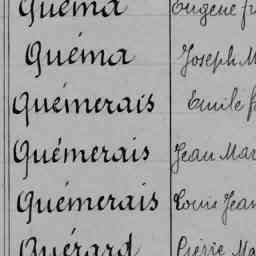 Quéma Eugène
Quéma Joseph M
Quémerais Emile
Quémerais Jean Mar
Quémerais Louis Jean
Quérard Pierre Ma